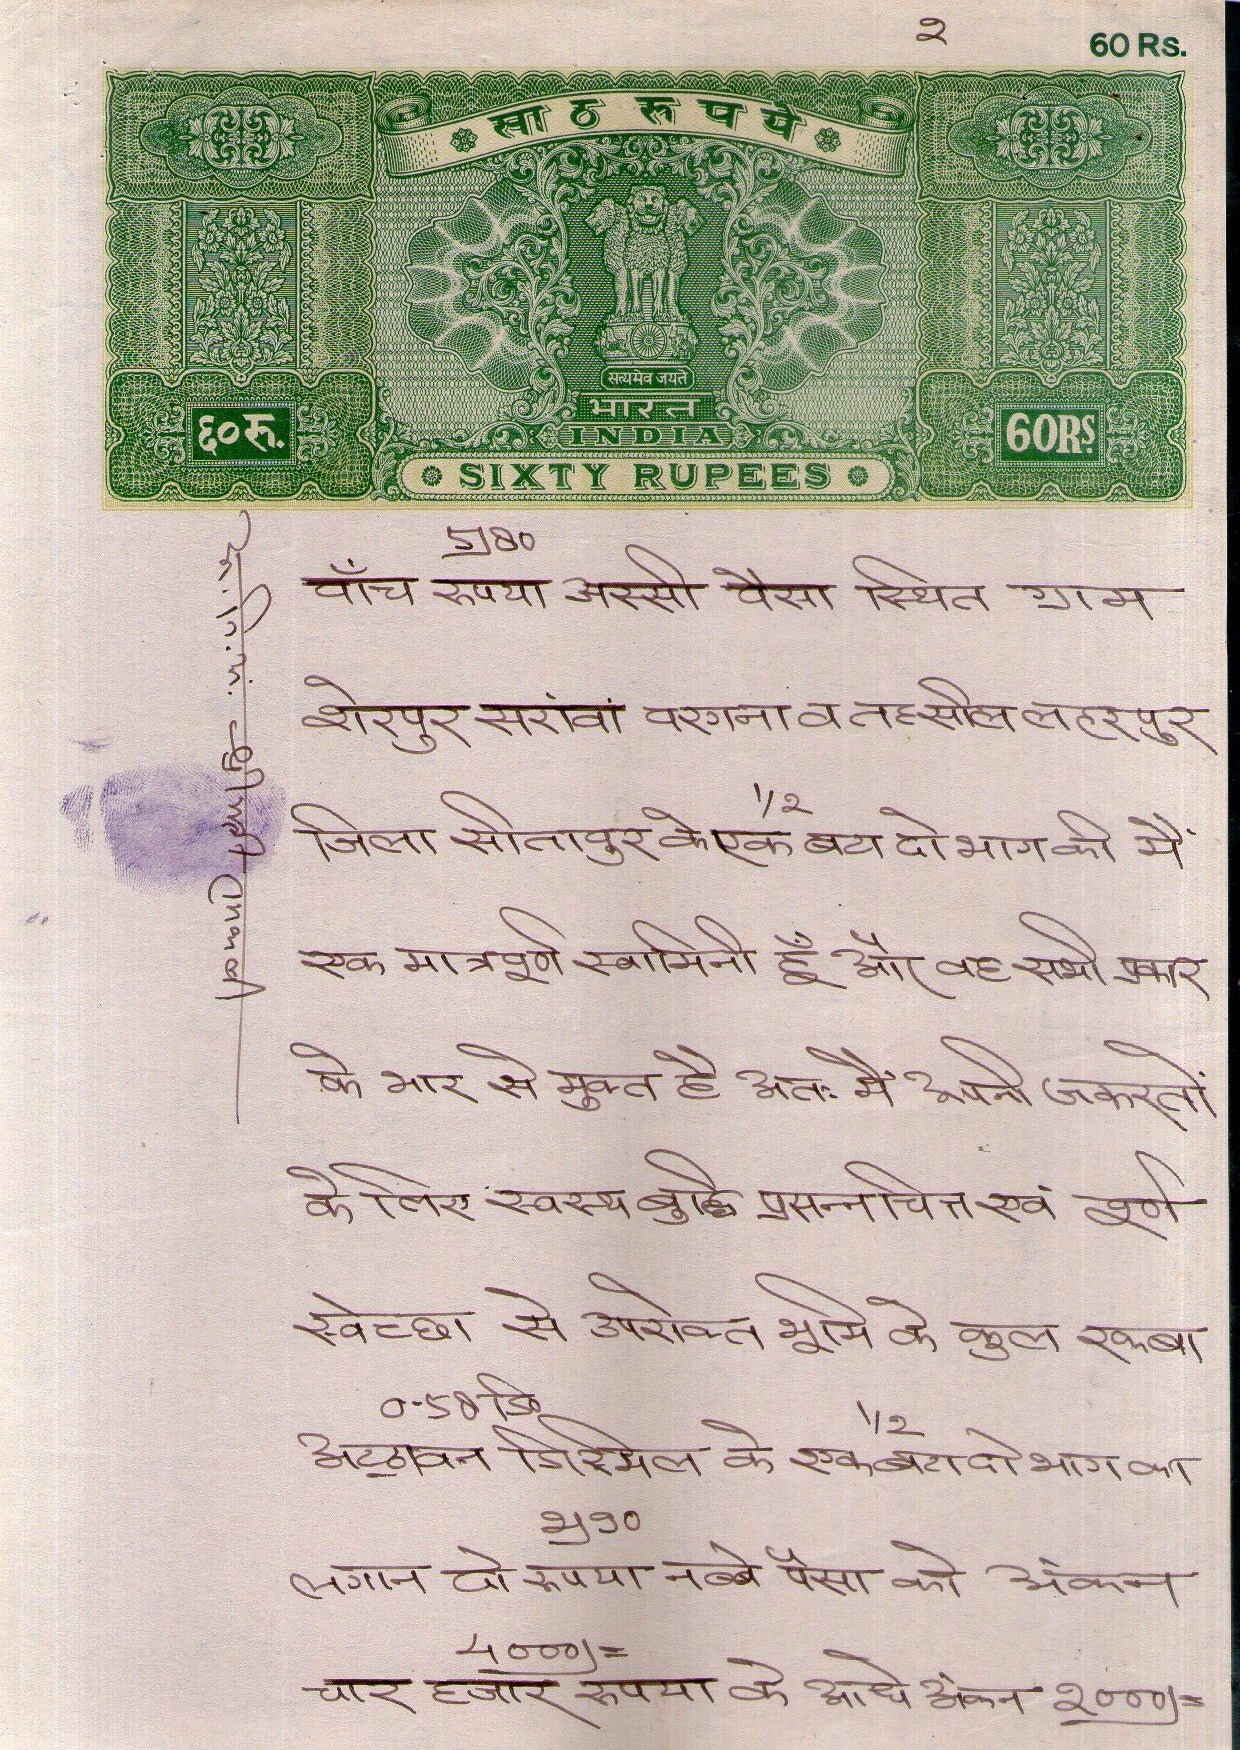 २
60 Rs.
साठ रुपये
सत्यमेव जयते
भारत
INDIA
६० रू.
60 Rs.
SIXTY RUPEES
5)80
पाँच रूपया अस्सी पैसा स्थित ग्राम
शेरपुर सरांवां परगना व तहसील लहरपुर
1/2
जिला सीतापुर के एक बटा दो भाग की मैं
एक मात्र पूर्ण स्वामिनी हूँ और वह सभी प्रकार
के भार से मुक्त है अतः मैं अपनी जरूरतों
के लिए स्वस्थ बुद्धि प्रसन्नचित्त एवं पूर्ण
स्वेच्छा से उपरोक्त भूमि के कुल रकबा
0-58 डि0
1/2
अट्ठावन डिस्मिल के एक बटा दो भाग का
२)90
लगान दो रूपया नब्बे पैसा को अंकन
4000)=
चार हजार रूपया के आधे अंकन 2000)=